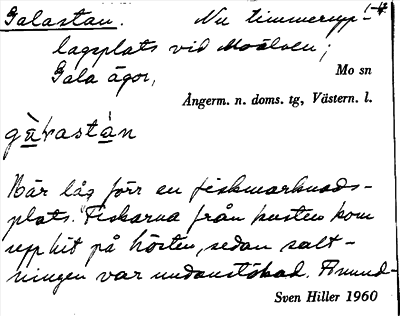 Galastan. Nu timmerupp- 1-4
lagsplats vid Moälven;
Gala ägor,
Mo sn
Ångerm. n. doms. tg, Västern. l.
Här låg förr en fiskmarknads-
plats. "Fiskarna från kusten kom
upp hit på hösten, sedan salt-
ningen var undanstökad. Amund-
Sven Hiller 1960